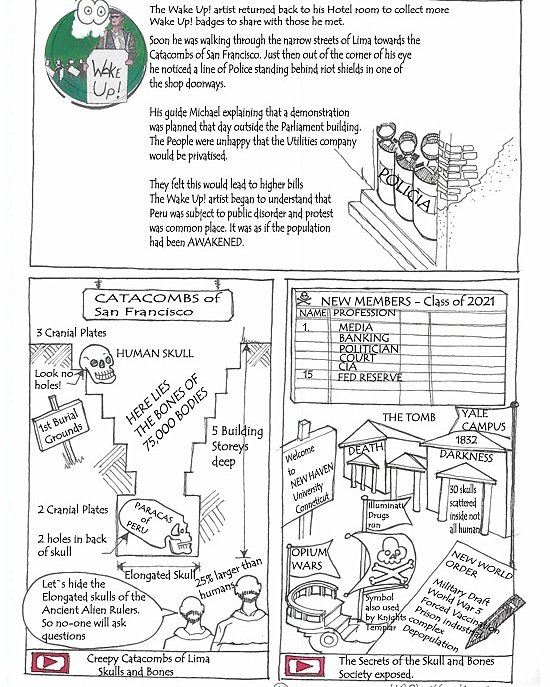 The Wake Up! artist returned back to his Hotel room to collect more
Wake Up! badges to share with those he met.
Soon he was walking through the narrow streets of Lima towards the
Catacombs of San Francisco. Just then out of the corner of his eye
he noticed a line of Police standing behind riot shields in one of
the shop doorways.
Wake
Up!
His guide Michael explaining that a demonstration
was planned that day outside the Parliament building.
The People were unhappy that the Utilities company
would be privatised.
They felt this would lead to higher bills
The Wake Up! artist began to understand that
Peru was subject to public disorder and protest
was common place. It was as if the population
had been AWAKENED.
POLICIA
CATACOMBS of
San Francisco
3 Cranial Plates
HUMAN SKULL
Look no
holes!
1st Burial
Grounds
HERE LIES
THE BONES OF
75,000 BODIES
5 Building
Storeys
deep
2 Cranial Plates
2 holes in back
of skull
PARACAS
of
PERU
Elongated Skull
25% larger than
humans
Let`s hide the
Elongated skulls of the
Ancient Alien Rulers.
So no-one will ask
questions
Creepy Catacombs of Lima
Skulls and Bones
NEW MEMBERS - Class of 2021
NAME PROFESSION
1. MEDIA
BANKING
POLITICIAN
COURT
CIA
15 FED RESERVE
THE TOMB
YALE
CAMPUS
1832
Welcome
to
NEW HAVEN
University
Connecticut
DEATH
DARKNESS
30 skulls
scattered
inside not
all human
Illuminati
Drugs
run
OPIUM
WARS
Symbol
also used
by Knights
Templar
NEW WORLD
ORDER
Military Draft
World War 3
Forced Vaccination
Prison industrial
complex
Depopulation
The Secrets of the Skull and Bones
Society exposed.